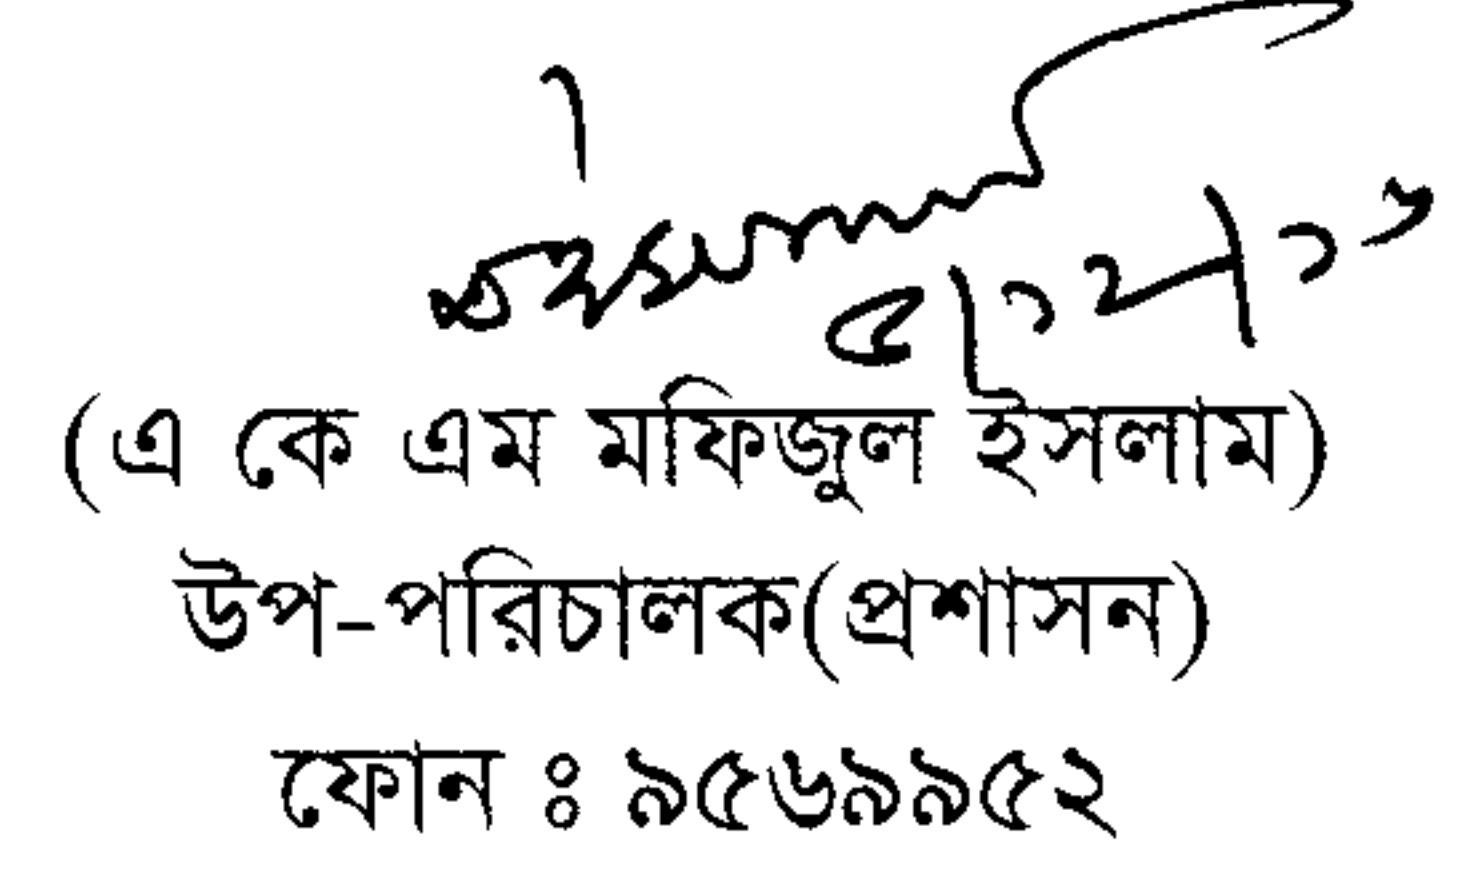 (এ কে এম মফিজুল ইসলাম)
উপ-পরিচালক(প্রশাসন)
ফোন : ৯৫৬৯৯৫২